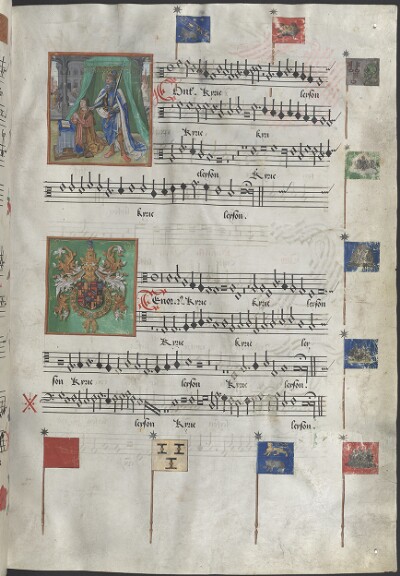 Kyrie leyson
Kyrie kyri
eleyson Kyrie
Kyrie leyson.
Tenor. 2. Kyrie Kyrie leyson
Kyrie Kyrie ley
son Kyrie leyson Kyrie leyson.
leyson Kyrie leyson.